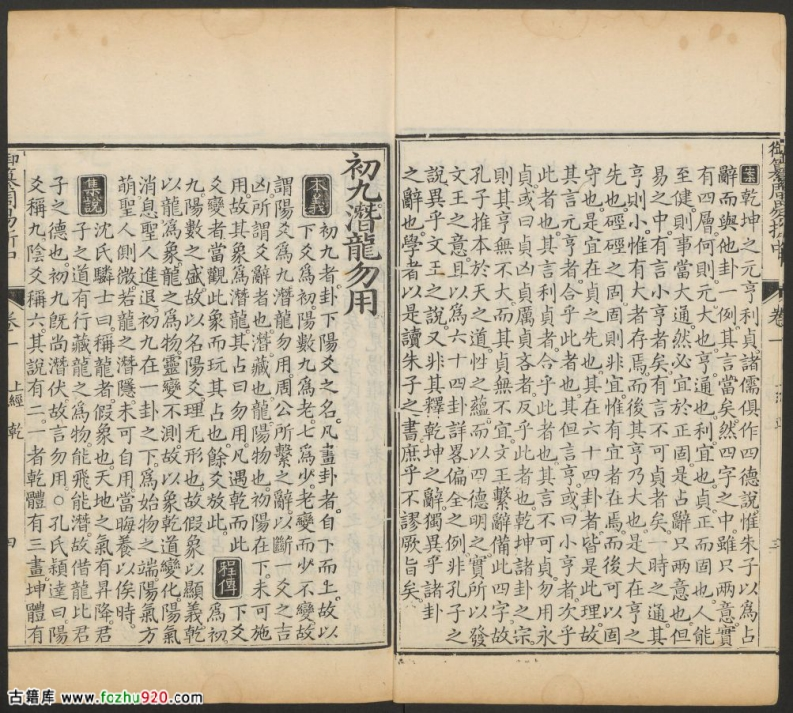 御纂周易折中
卷一
案乾坤之元亨利貞諸儒俱作四德說惟朱子以為占
辭而與他卦一例其言當矣然四字之中雖只兩意實
有四層何則元大也亨通也利宜也貞正而固也人能
至健則事當大通然必宜於正固是占辭只兩意也但
易之中有言小亨者矣有言不可貞者矣一時之通其
亨則小惟有大者存焉而後其亨乃大也是大在亨之
先也硜硜之固固則非宜惟有宜者在焉而後可以固
守也是宜在貞之先也其在六十四卦者皆是此理故
其言元亨者合乎此者也其但言亨或曰小亨者次乎
此者也其言利貞者合乎此者也其言不可貞勿用永
貞或曰貞凶貞厲貞吝者反乎此者也乾坤諸卦之宗
則其亨無不大而其貞無不宜文王繫辭備此四字故
孔子推本於天之道性之蘊而以四德明之實所以發
文王之意且以為六十四卦詳畧偏全之例非孔子之
說異乎文王之說又非其釋乾坤之辭獨異乎諸卦
之辭也學者以是讀朱子之書庶乎不謬厥旨矣
初九潛龍勿用
本義初九者卦下陽爻之名凡畫卦者自下而上故以
下爻為初陽數九為老七為少老變而少不變故
謂陽爻為九潛龍勿用周公所繫之辭以斷一爻之吉
凶所謂爻辭者也潛藏也龍陽物也初陽在下未可施
用故其象為潛龍其占曰勿用凡遇乾而此
爻變者當觀此象而玩其占也餘爻放此程傳下爻
為初
九陽數之盛故以名陽爻理无形也故假象以顯義乾
以龍為象龍之為物靈變不測故以象乾道變化陽氣
消息聖人進退初九在一卦之下為始物之端陽氣方
萌聖人側微若龍之潛隱未可自用當晦養以俟時
集說沈氏驎士曰稱龍者假象也天地之氣有昇降君
子之道有行藏龍之為物能飛能潛故借龍比君
子之德也初九旣尚潛伏故言勿用○孔氏穎達曰陽
爻稱九陰爻稱六其說有二一者乾體有三畫坤體有
卷一
上經 乾
四
古籍库 www.fozhu920.com